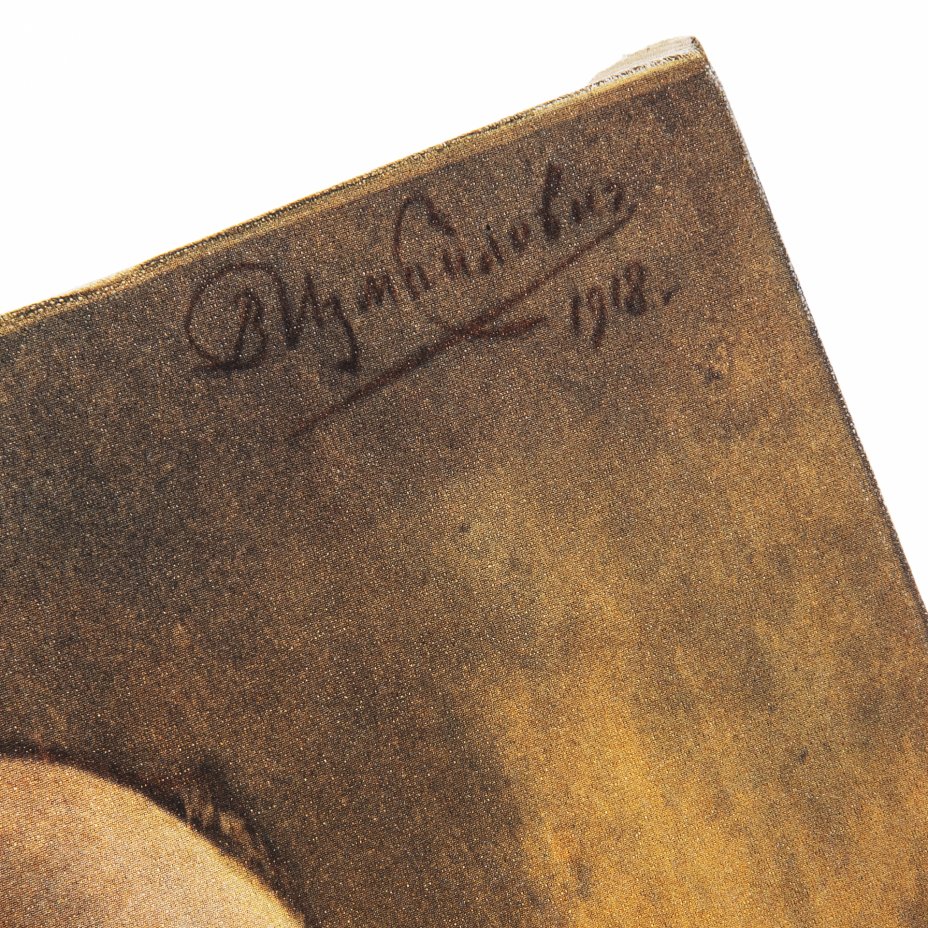 В Измайлович
1918.